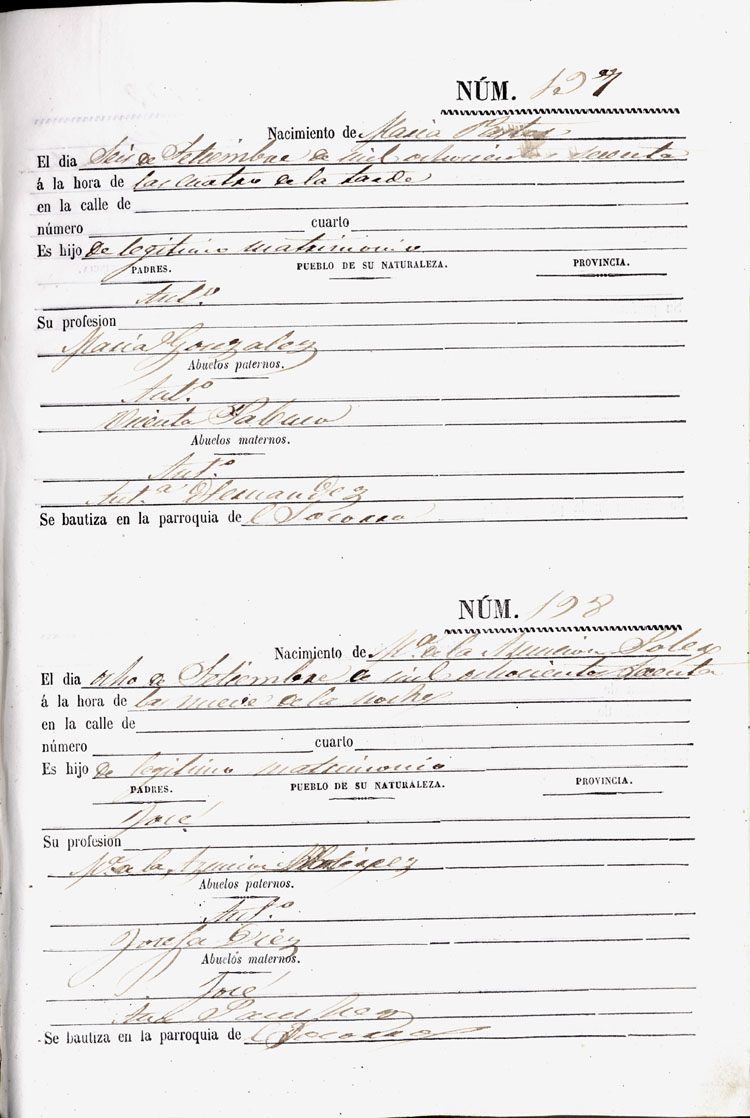 NÚM. 197
Nacimiento de Maria
El dia Seis de Setiembre de mil ochocientos sesenta
á la hora de las cuatro de la tarde
en la calle de
número cuarto
Es hijo de legitimo matrimonio
PADRES. PUEBLO DE SU NATURALEZA. PROVINCIA.
Ant.º
Su profesion
Maria Gonzalez
Abuelos paternos.
Ant.º
Vicenta
Abuelos maternos.
Ant.º
Ant.ª Hernandez
Se bautiza en la parroquia de el Socorro
NÚM. 198
Nacimiento de M.ª de la Asuncion Soler
El dia ocho de Setiembre de mil ochocientos sesenta
á la hora de las nueve de la noche
en la calle de
número cuarto
Es hijo de legitimo matrimonio
PADRES. PUEBLO DE SU NATURALEZA. PROVINCIA.
José
Su profesion
M.ª de la Asuncion
Abuelos paternos.
Ant.º
Josefa Diez
Abuelos maternos.
José
Ana Sanchez
Se bautiza en la parroquia de el Socorro